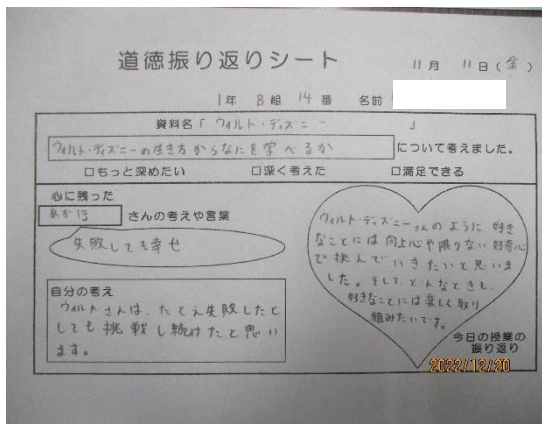 道徳振り返りシート
11月 11日(金)
1年 B組 14番 名前
資料名「ウォルト・ディズニー」
ウォルト・ディズニーの生き方からなにを学べるか
について考えました。
□もっと深めたい □深く考えた □満足できる
心に残った
あかほ さんの考えや言葉
失敗しても幸せ
自分の考え
ウォルトさんは、たとえ失敗したと
しても挑戦し続けたと思い
ます。
ウォルト・ディズニーさんのように、好き
なことには向上心や限りない好奇心
で挑んでいきたいと思いま
した。そして、どんなときも、
好きなことには楽しく取り
組みたいです。
今日の授業の
振り返り
2022/12/20